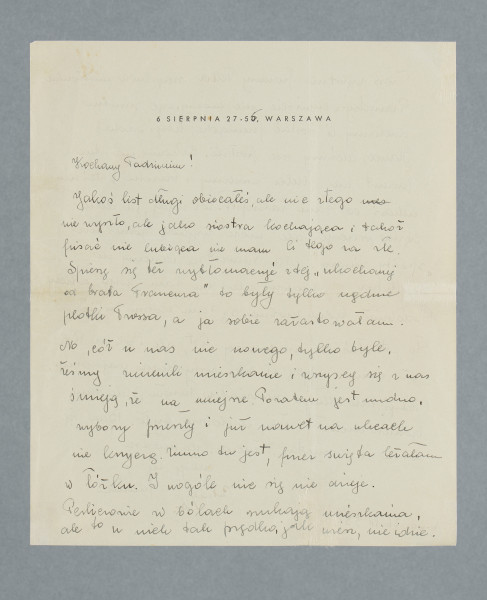 6 SIERPNIA 27-55, WARSZAWA
Kochany Tadziuniu!
Jakoś list długi obiecałeś, ale nic z tego
nie wyszło, ale jako siostra kochająca i takoż
pisać nie lubiąca nie mam Ci tego za złe.
Spieszę się też wytłomaczyć z tej „ukochanej
od brata Franciszka" to były tylko
plotki Prossa, a ja sobie zażartowałam.
No, cóż u nas nic nowego, tylko tyle,
żeśmy zmienili mieszkanie i wszyscy się z nas
śmieją, że na mniejsze. Pozatem jest nudno,
wybory przeszły i już nawet na ulicach
nie krzyczą. Zimno tu jest, przez święta leżałam
w łóżku. I wogóle nic się nie dzieje.
w bólach szukają mieszkania,
ale to u nich tak prędko, jak wiesz, nie idzie.